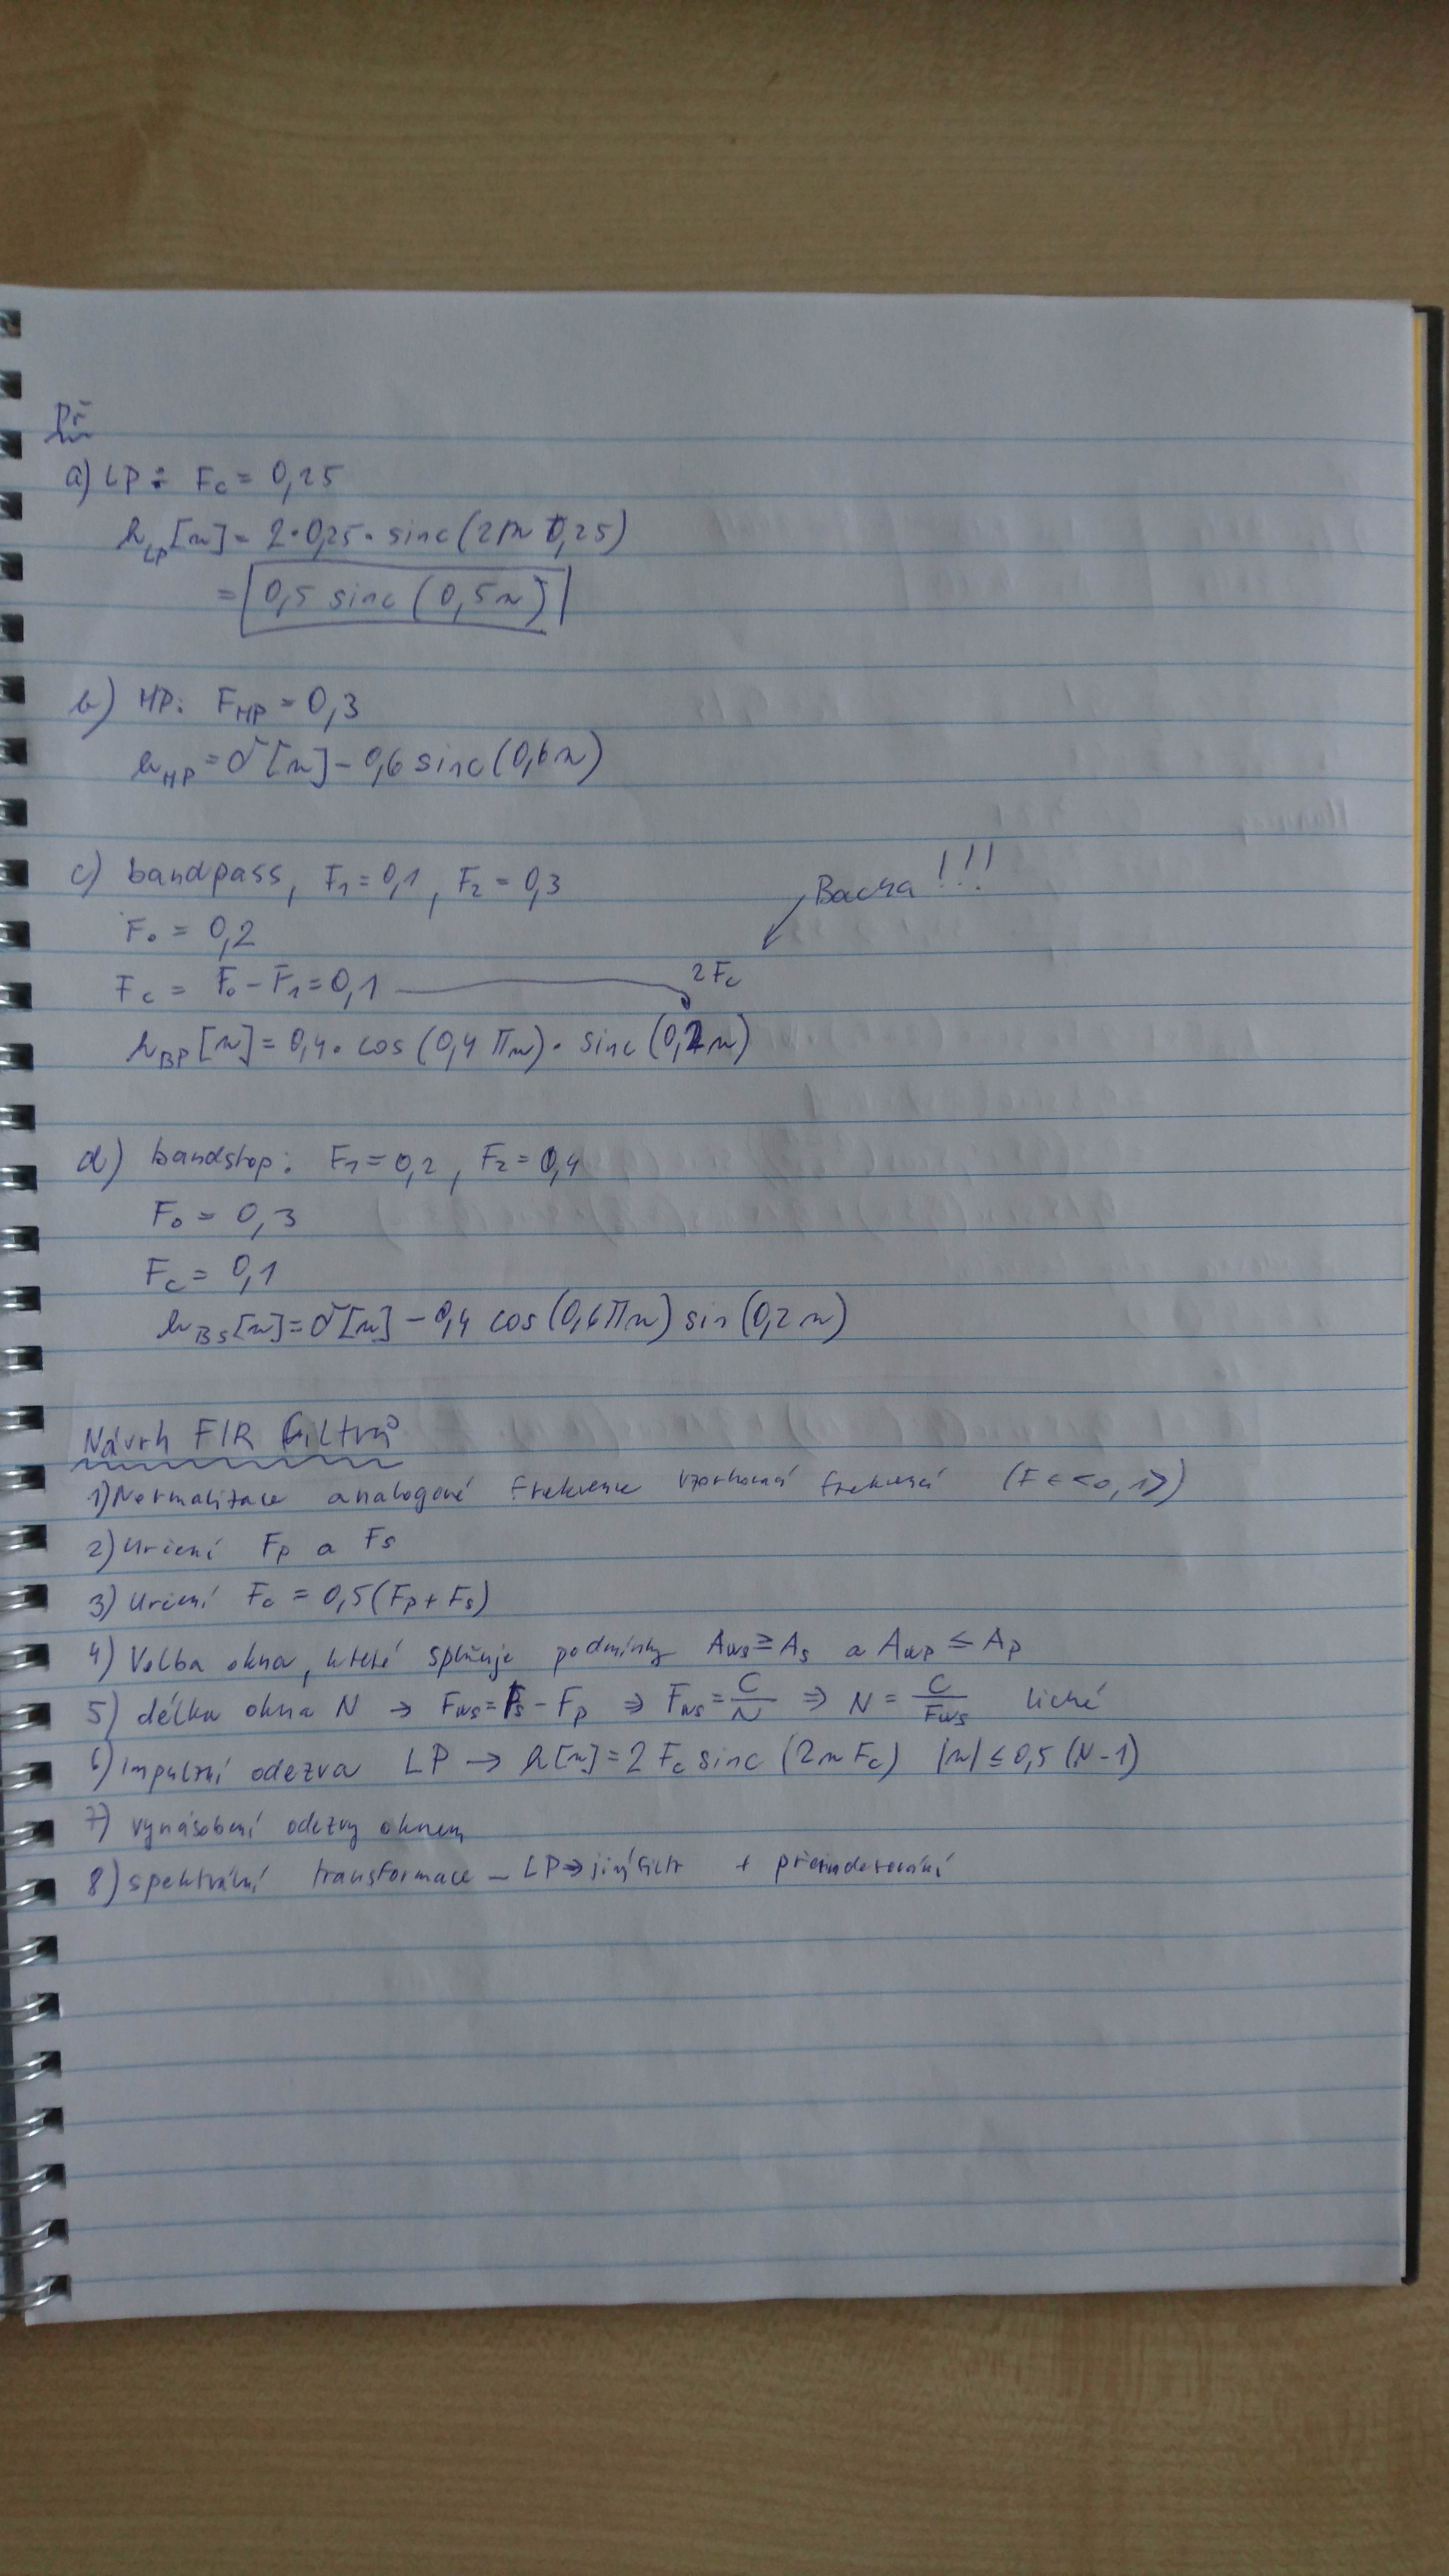 Př
a) LP: Fc = 0,25
h_LP[n] = 2·0,25· sinc(2πn 0,25)
= 0,5 sinc(0,5n)
b) HP: F_HP = 0,3
h_HP = δ[n] - 0,6 sinc(0,6n)
c) bandpass, F1 = 0,1, F2 = 0,3
Bacha !!!
F0 = 0,2
Fc = F0 - F1 = 0,1
2Fc
h_BP[n] = 0,4· cos(0,4πn)· sinc(0,2n)
d) bandstop: F1 = 0,2, F2 = 0,4
F0 = 0,3
Fc = 0,1
h_BS[n] = δ[n] - 0,4 cos(0,6πn) sin(0,2n)
Návrh FIR filtrů
1) Normalizace analogové frekvence vzorkovací frekvencí (F ∈ <0,1>)
2) Určení Fp a Fs
3) Určení Fc = 0,5(Fp + Fs)
4) Volba okna, které splňuje podmínky Aws ≥ As a Awp ≤ Ap
5) délka okna N → Fws = Fs - Fp ⇒ Fws = C/N ⇒ N = C/Fws liché
6) Impulzní odezva LP → h[n] = 2 Fc sinc(2nFc) |n| ≤ 0,5(N-1)
7) vynásobení odezvy oknem
8) spektrální transformace - LP → jiný filtr + přeindexování